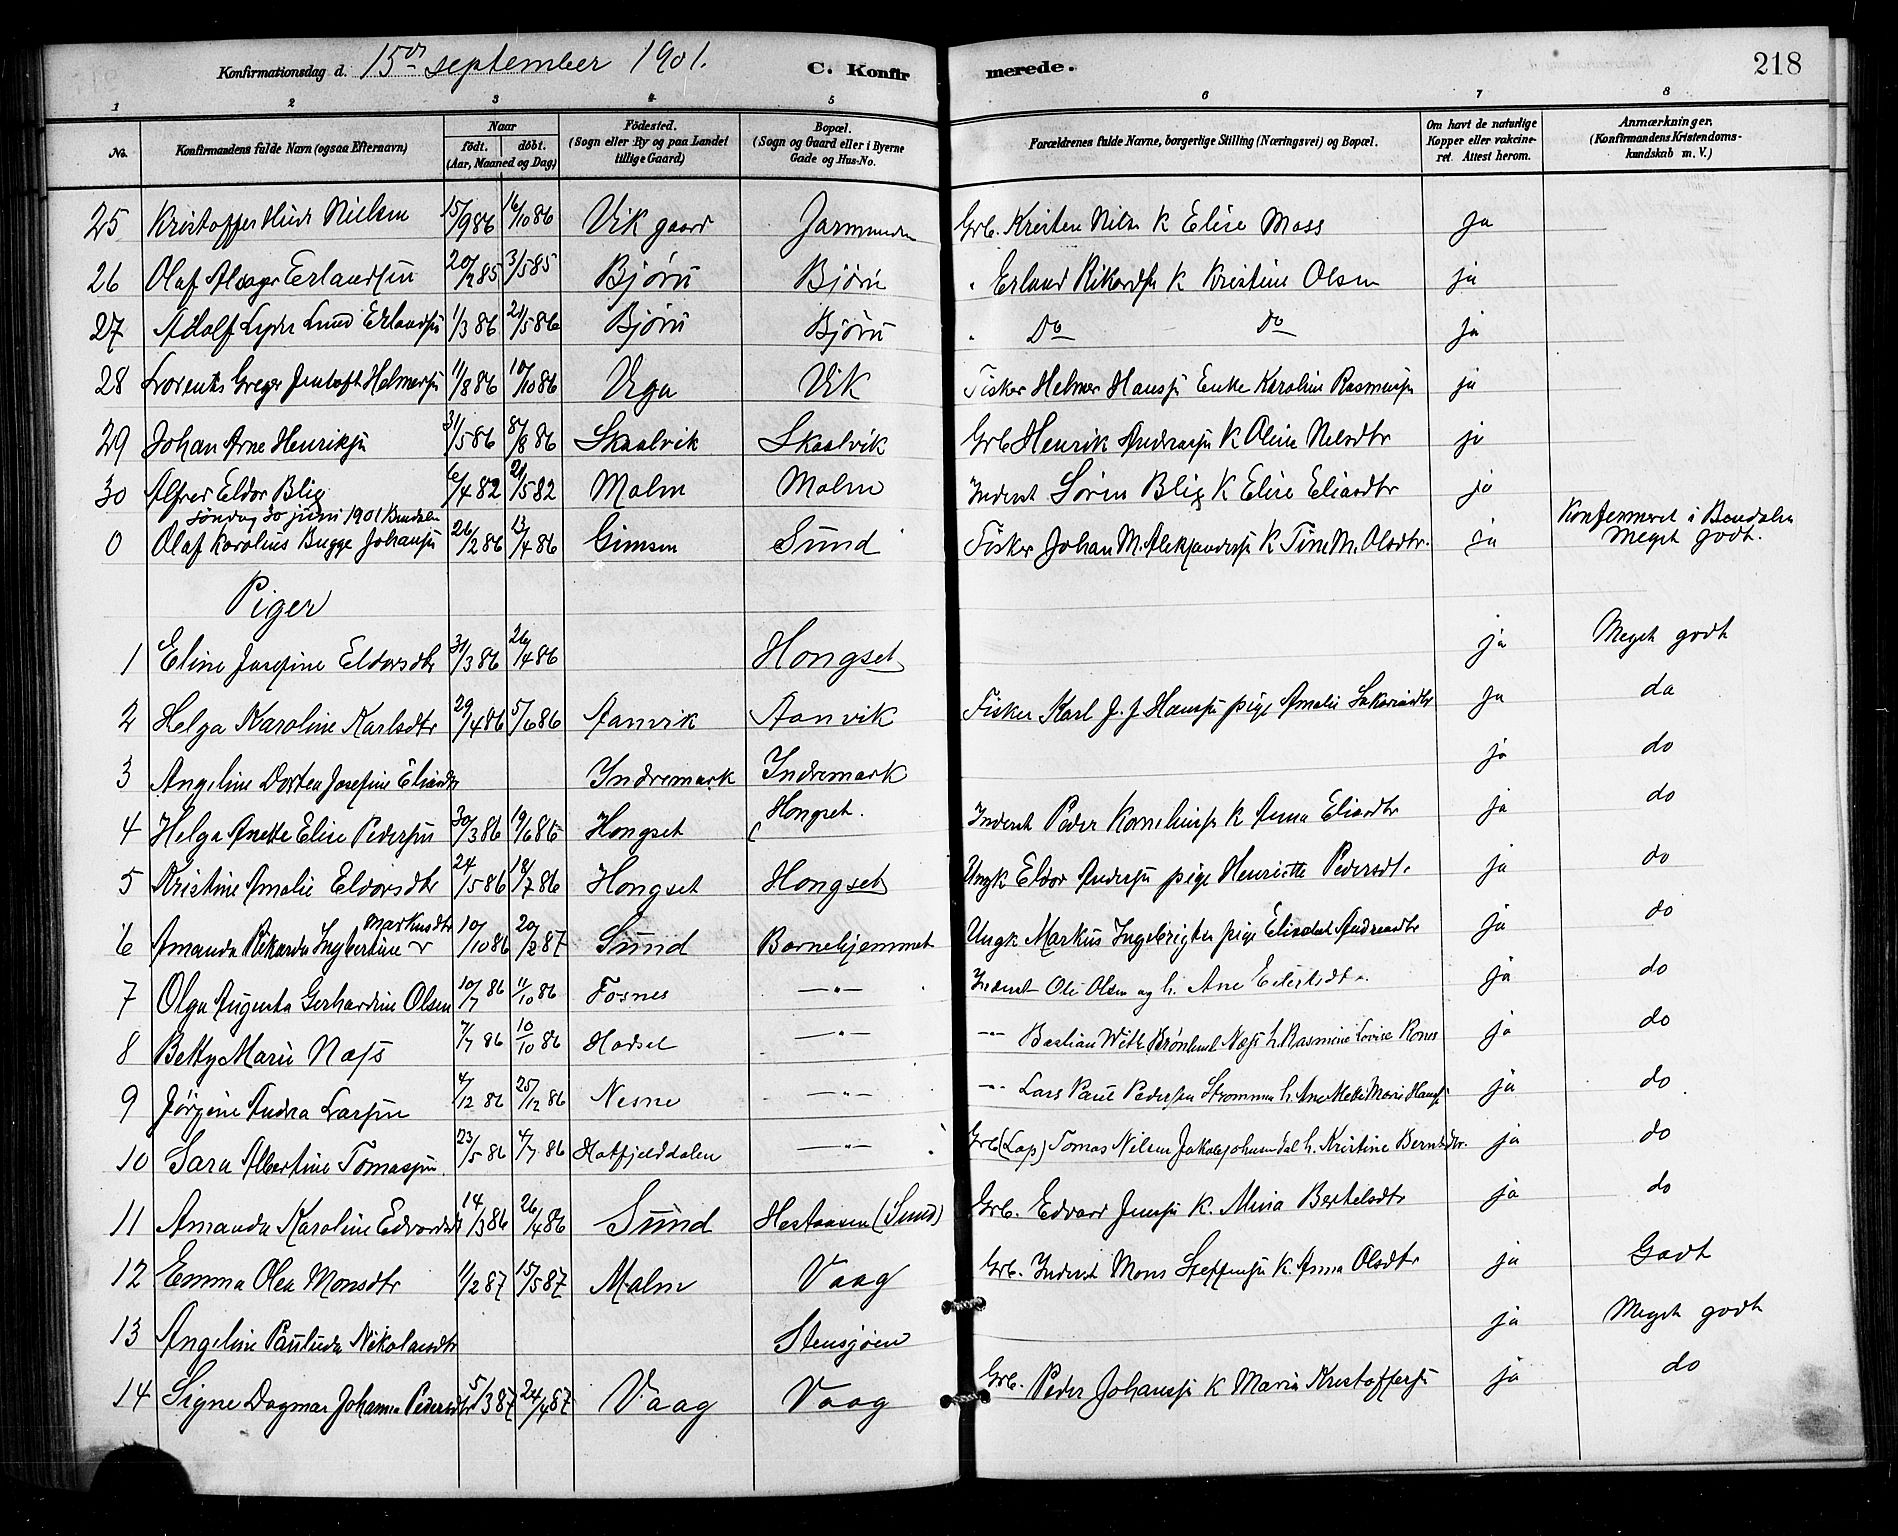 218
Konfirmationsdag d. 15de september 1901. C. Konfirmerede.
1 2 3 4 5 6 7 8
No. Konfirmandens fulde Navn (ogsaa Efternavn) Naar født. døbt. (Aar, Maaned og Dag.) Fødested. (Sogn eller By og paa Landet tillige Gaard) Bopæl. (Sogn og Gaard eller i Byerne Gade og Hus-No. Forældrenes fulde Navne, borgerlige Stilling (Næringsvei) og Bopæl. Om havt de naturlige Kopper eller vakcineret. Attest herom. Anmærkninger. (Konfirmandens Kristendomskundskab m. V.)
25 Kristoffer Nilsen 15/9 86 16/10 86 Vik gaard Grb. Kristen Nils K Elise Moss ja
26 Olaf Erlandsen 3/5 85 Bjørn Bjørn " Erland Rikardsn K Kristine Olsen ja
27 Adolf Lyder Lund Erlandsn 1/3 86 21/5 86 Bjørn Bjørn " Do Do ja
28 Lorents Greger Jentoft Helmersn 11/8 86 10/10 86 Vega Vik Fisker Helmer Hansn Enke Karoline Rasmusn ja
29 Johan Arne Henriksn 31/5 86 8/8 86 Skaalvik Skaalvik Grb Henrik Andreasn K Oline Nelsdtr ja
30 Alfred Eldor Blix 6/4 82 21/5 82 Malm Malm Inderst Søren Blix K Elise Eliasdtr ja
søndag 30 juni 1901 Bindalen
0 Olaf Karolius Bugge Johansn 26/2 86 13/4 86 Gimsen Sund Fisker Johan M. Aleksandersn K Tine M. Olsdtr. ja Konfirmeret i Bindalen Meget godt.
Piger
1 Eline Josefine Eldorsdtr 31/3 86 26/4 86 Hongset ja Meget godt
2 Helga Karoline Karlsdtr 29/4 86 5/6 86 Aanvik Aanvik Fisker Karl J. J Hansn pige Amalie Sakariasdtr ja do
3 Angeline Dortea Josefine Eliasdtr Indremark Indremark ja do
4 Helga Anette Elise Pedersen 30/3 86 19/6 86 Hongset Hongset. Inderst Peder Korneliusn K Anna Eliasdtr ja do
5 Kristine Amalie Eldorsdtr 24/5 86 18/7 86 Hongset Hongset Ungk Eldor Andersn pige Henriette Pedersdt. ja do
6 Amanda Rikarda Ingbertine Markusdtr 10/10 86 20/2 87 Sund Børnehjemmet Ungk Markus Ingebrigtsn pige Elisabet Andreasdtr ja do
7 Olga Augusta Gerhardine Olsen 10/7 86 11/10 86 Fosnes —"— Inderst Ole Olsen og h. Ane ja do
8 Betty Marie Næss 7/7 86 10/10 86 Hadsel —"— —"— Bastian Næss h. Rasmine Lovise ja do
9 Jørgine Andrea Larsen 4/12 86 25/12 86 Nesne —"— —"— Lars Paul Pedersen Strømmen h. Ane Mette Marie Hansn ja do
10 Sara Albertine Tomassen. 23/5 86 4/7 86 Hatfjelddalen —"— Grb (Lap) Tomas Nilsen h. Kristine Berntsdtr. ja do
11 Amanda Karoline Edvardsdtr 14/3 86 26/4 86 Sund Hestaasen (Sund) Grb. Edvard Jensn K. Mina Bertelsdtr ja do
12 Emma Olea Monsdtr 11/2 87 15/5 87 Malm Vaag Grb. Inderst Mons Steffensn K. Anna Olsdtr ja Godt
13 Angeline Paulinda Nikolaisdtr Stensjøen ja Meget godt
14 Signe Dagmar Johanna Pedersdtr 5/3 87 24/4 87 Vaag Vaag Grb. Peder Johansn K Maria Kristoffersn ja do